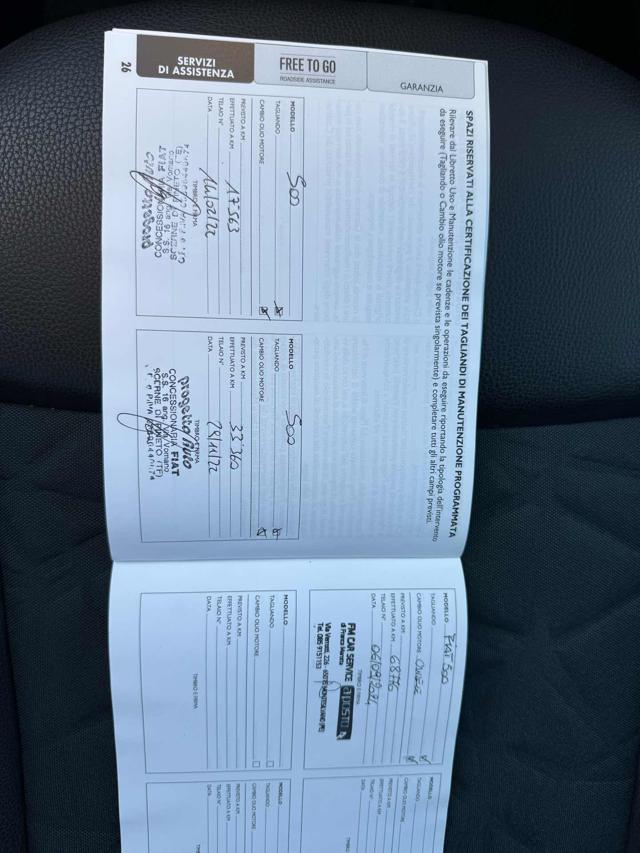 SERVIZI
DI ASSISTENZA
FREE TO GO
ROADSIDE ASSISTANCE
GARANZIA
26
SPAZI RISERVATI ALLA CERTIFICAZIONE DEI TAGLIANDI DI MANUTENZIONE PROGRAMMATA
Rilevare dal Libretto Uso e Manutenzione le cadenze e le operazioni da eseguire riportando la tipologia dell'intervento
da eseguire (Tagliando o Cambio olio motore se prevista singolarmente) e completare tutti gli altri campi previsti.
MODELLO 500
TAGLIANDO
CAMBIO OLIO MOTORE
PREVISTO A KM
EFFETTUATO A KM 17563
TELAIO N°
DATA 14/02/22
TIMBRO E FIRMA
CONCESSIONARIA FIAT
MODELLO 500
TAGLIANDO
CAMBIO OLIO MOTORE
PREVISTO A KM
EFFETTUATO A KM 33360
TELAIO N°
DATA 29/11/22
TIMBRO E FIRMA
progetto Auto
CONCESSIONARIA FIAT
S.S. 16 ang. Via Vomano
SCERNE DI PINETO (TE)
MODELLO FIAT 500
TAGLIANDO
CAMBIO OLIO MOTORE
PREVISTO A KM
EFFETTUATO A KM
TELAIO N°
DATA
TIMBRO E FIRMA
FM CAR SERVICE a posto
MODELLO
TAGLIANDO
CAMBIO OLIO MOTORE
PREVISTO A KM
EFFETTUATO A KM
TELAIO N°
DATA
TIMBRO E FIRMA
MODELLO
TAGLIANDO
CAMBIO OLIO MOTORE
PREVISTO A KM
EFFETTUATO A KM
TELAIO N°
DATA
MODELLO
TAGLIANDO
CAMBIO OLIO MOTORE
PREVISTO A KM
EFFETTUATO A KM
TELAIO N°
DATA